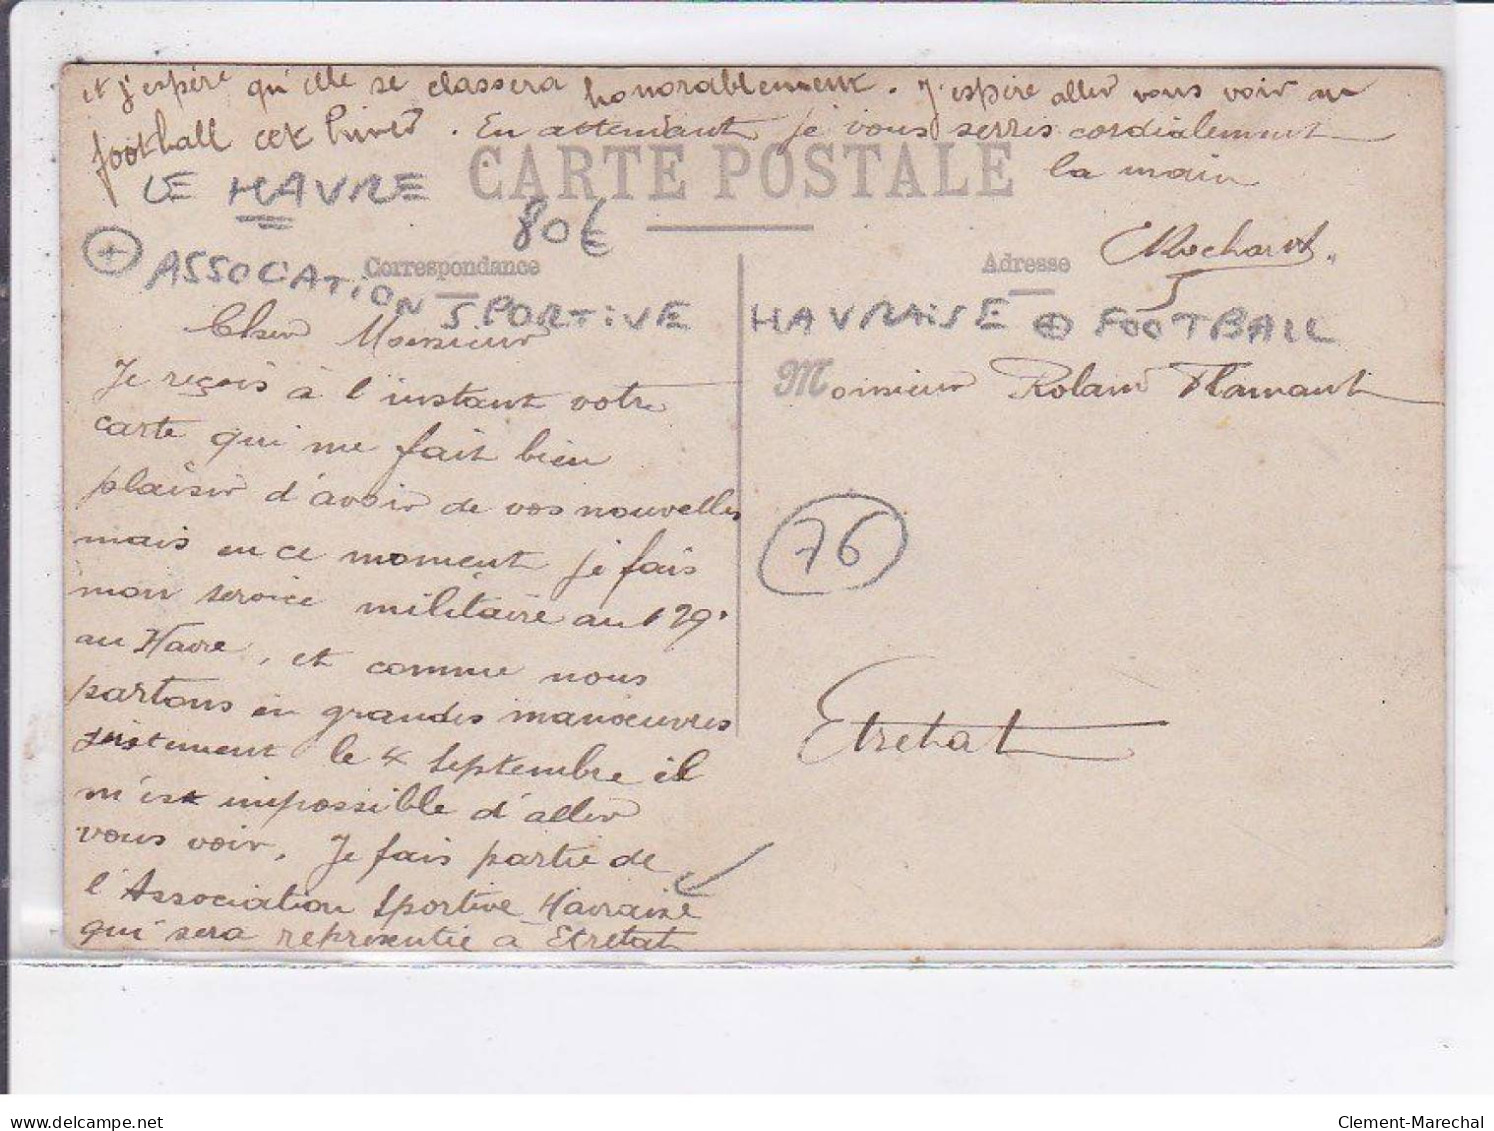 et j'espère qu'elle se classera honorablement. J'espère aller vous voir au
football cet hiver. En attendant je vous serres cordialement
la main
CARTE POSTALE
LE HAVRE
80€
Correspondance
Adresse
ASSOCATION SPORTIVE HAVRAISE + FOOTBALL
Cher Monsieur
Je reçois à l'instant votre
carte qui me fait bien
plaisir d'avoir de vos nouvelles
mais en ce moment je fais
mon service militaire au 129e
au Havre, et comme nous
partons en grandes manœuvres
justement le 4 Septembre il
m'est impossible d'aller
vous voir. Je fais partie de
l'Association Sportive Havraise
qui sera représentée à Etretat
Monsieur Roland Flamant
76
Etretat
delcampe.net
Clement-Marechal